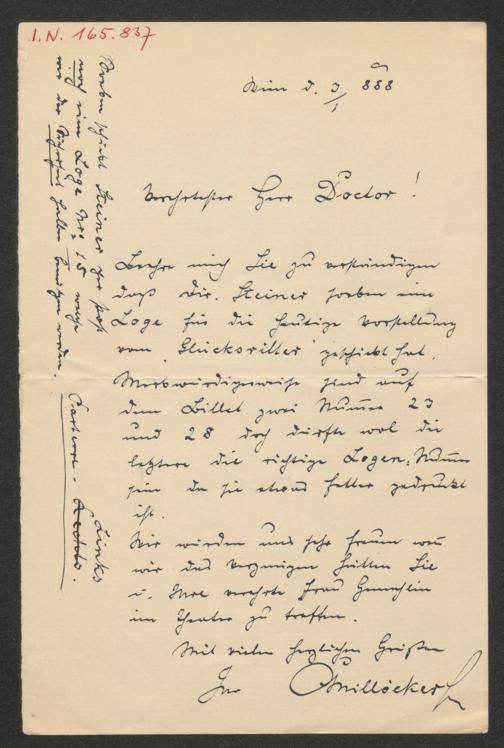 I.N. 165.837
Wien d. 3/1 888
Verehrtester Herr Doctor!
Beehre mich Sie zu verständigen
daß Dir. Steiner soeben eine
Loge für die heutige Vorstellung
vom "Glücksritter" geschickt hat.
Merkwürdigerweise sind auf
dem Billet zwei Numern 23
und 28 doch dürfte wol die
letztere die richtige Logen-Numer
sein da sie etwas fetter gedruckt
ist.
Wir würden uns sehr freuen wen
wir das Vergnügen hätten Sie
u. Ihre verehrte Frau Gemahlin
im Theater zu treffen.
Mit vielen herzlichen Grüßen
Ihr CMillöcker
Soeben schickt Steiner per
noch eine Loge Nro: 15 welche
von der
Parterre. Links
Rechts.